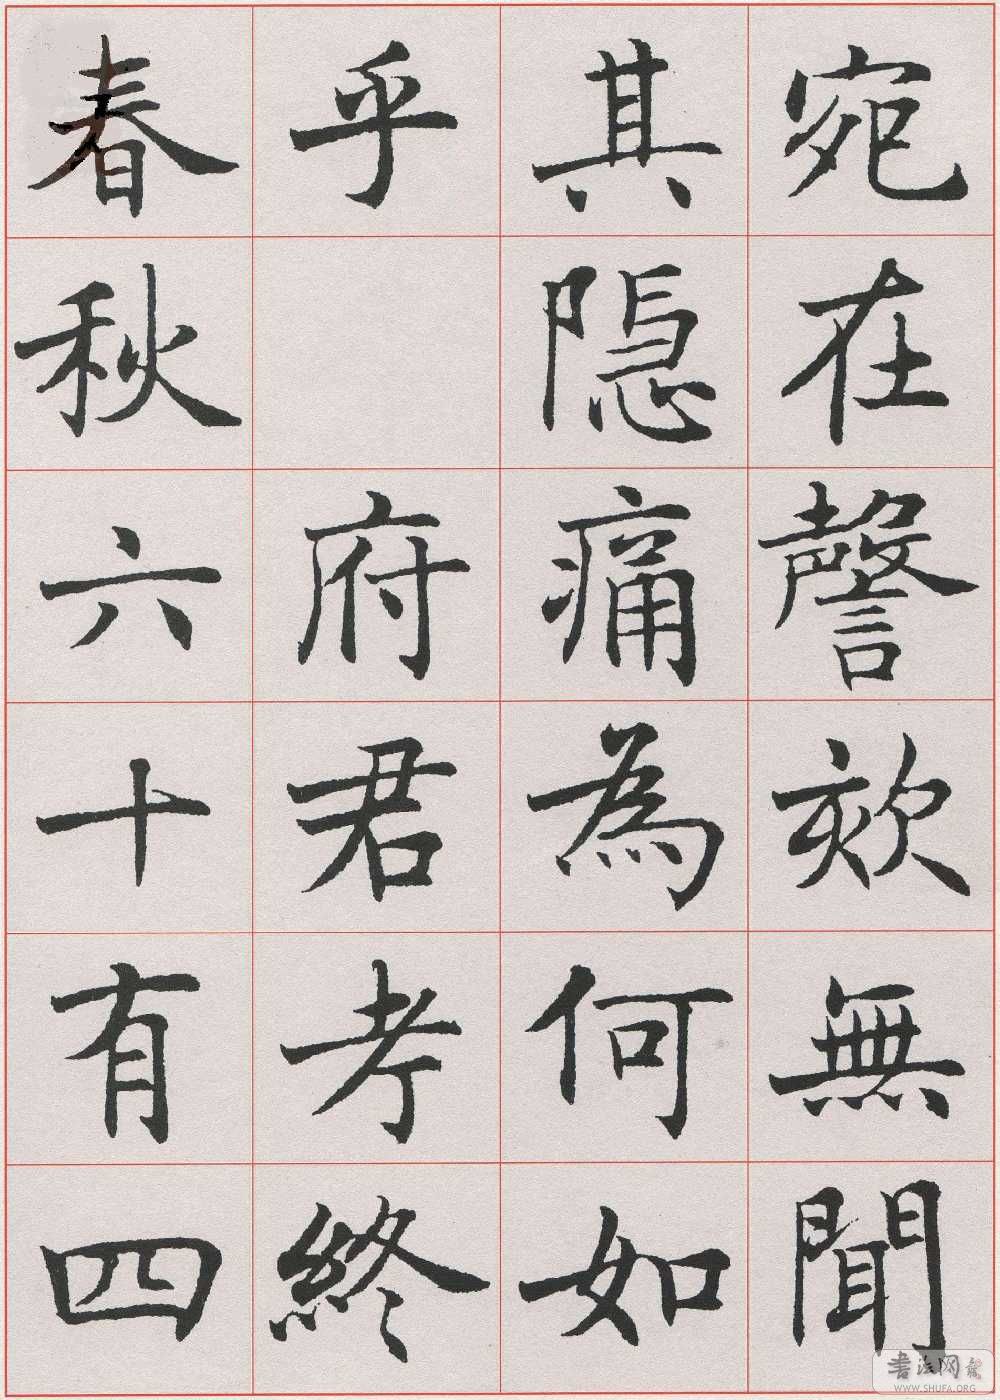 宛在謦欬無聞
其隐痛為何如
乎 府君考終
春秋六十有四
書法网
WWW.SHUFA.ORG